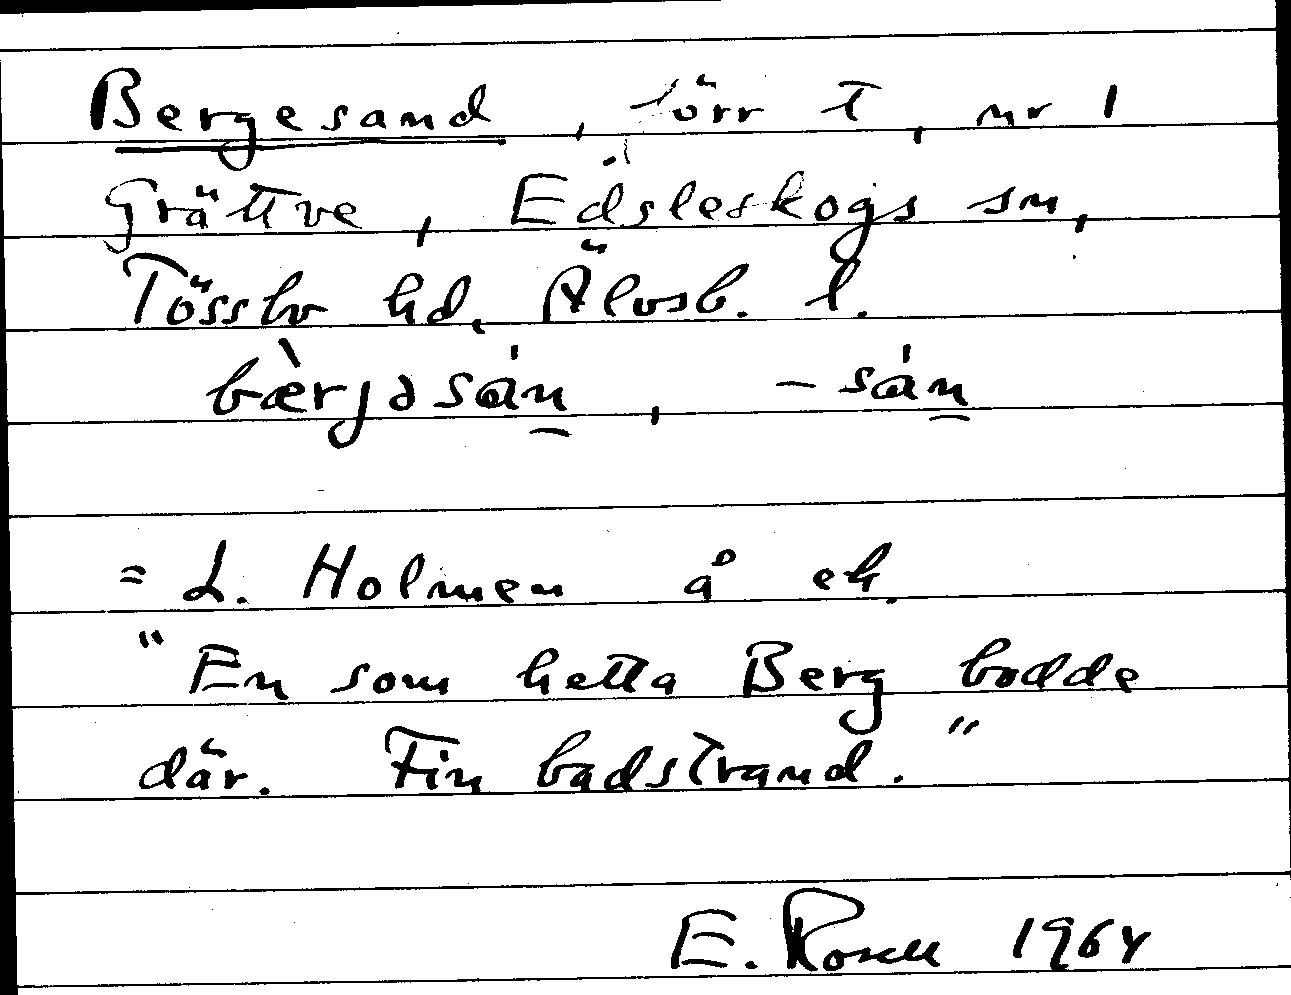 Bergesand, förr t, nr 1
Grättve, Edsleskogs sn,
Tössbo hd, Älvsb. l.
bæ̀rjəsán̲, -sán̲
= L. Holmen å ek.
"En som hetta Berg bodde
där. Fin badstrand."
E. Rosell 1964